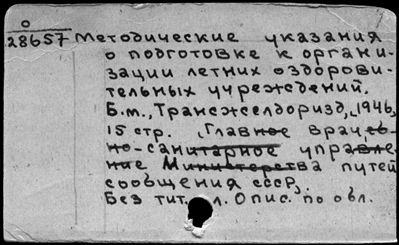 О
28657 Методические указания
о подготовке к органи-
зации летних оздорови-
тельных учреждений.
Б.м., Трансжелдориздат, 1946,
15 стр. Главное врачеб-
но-санитарное управле-
ние Министерства путей
сообщения СССР,
Без тит. л. Опис. по обл.